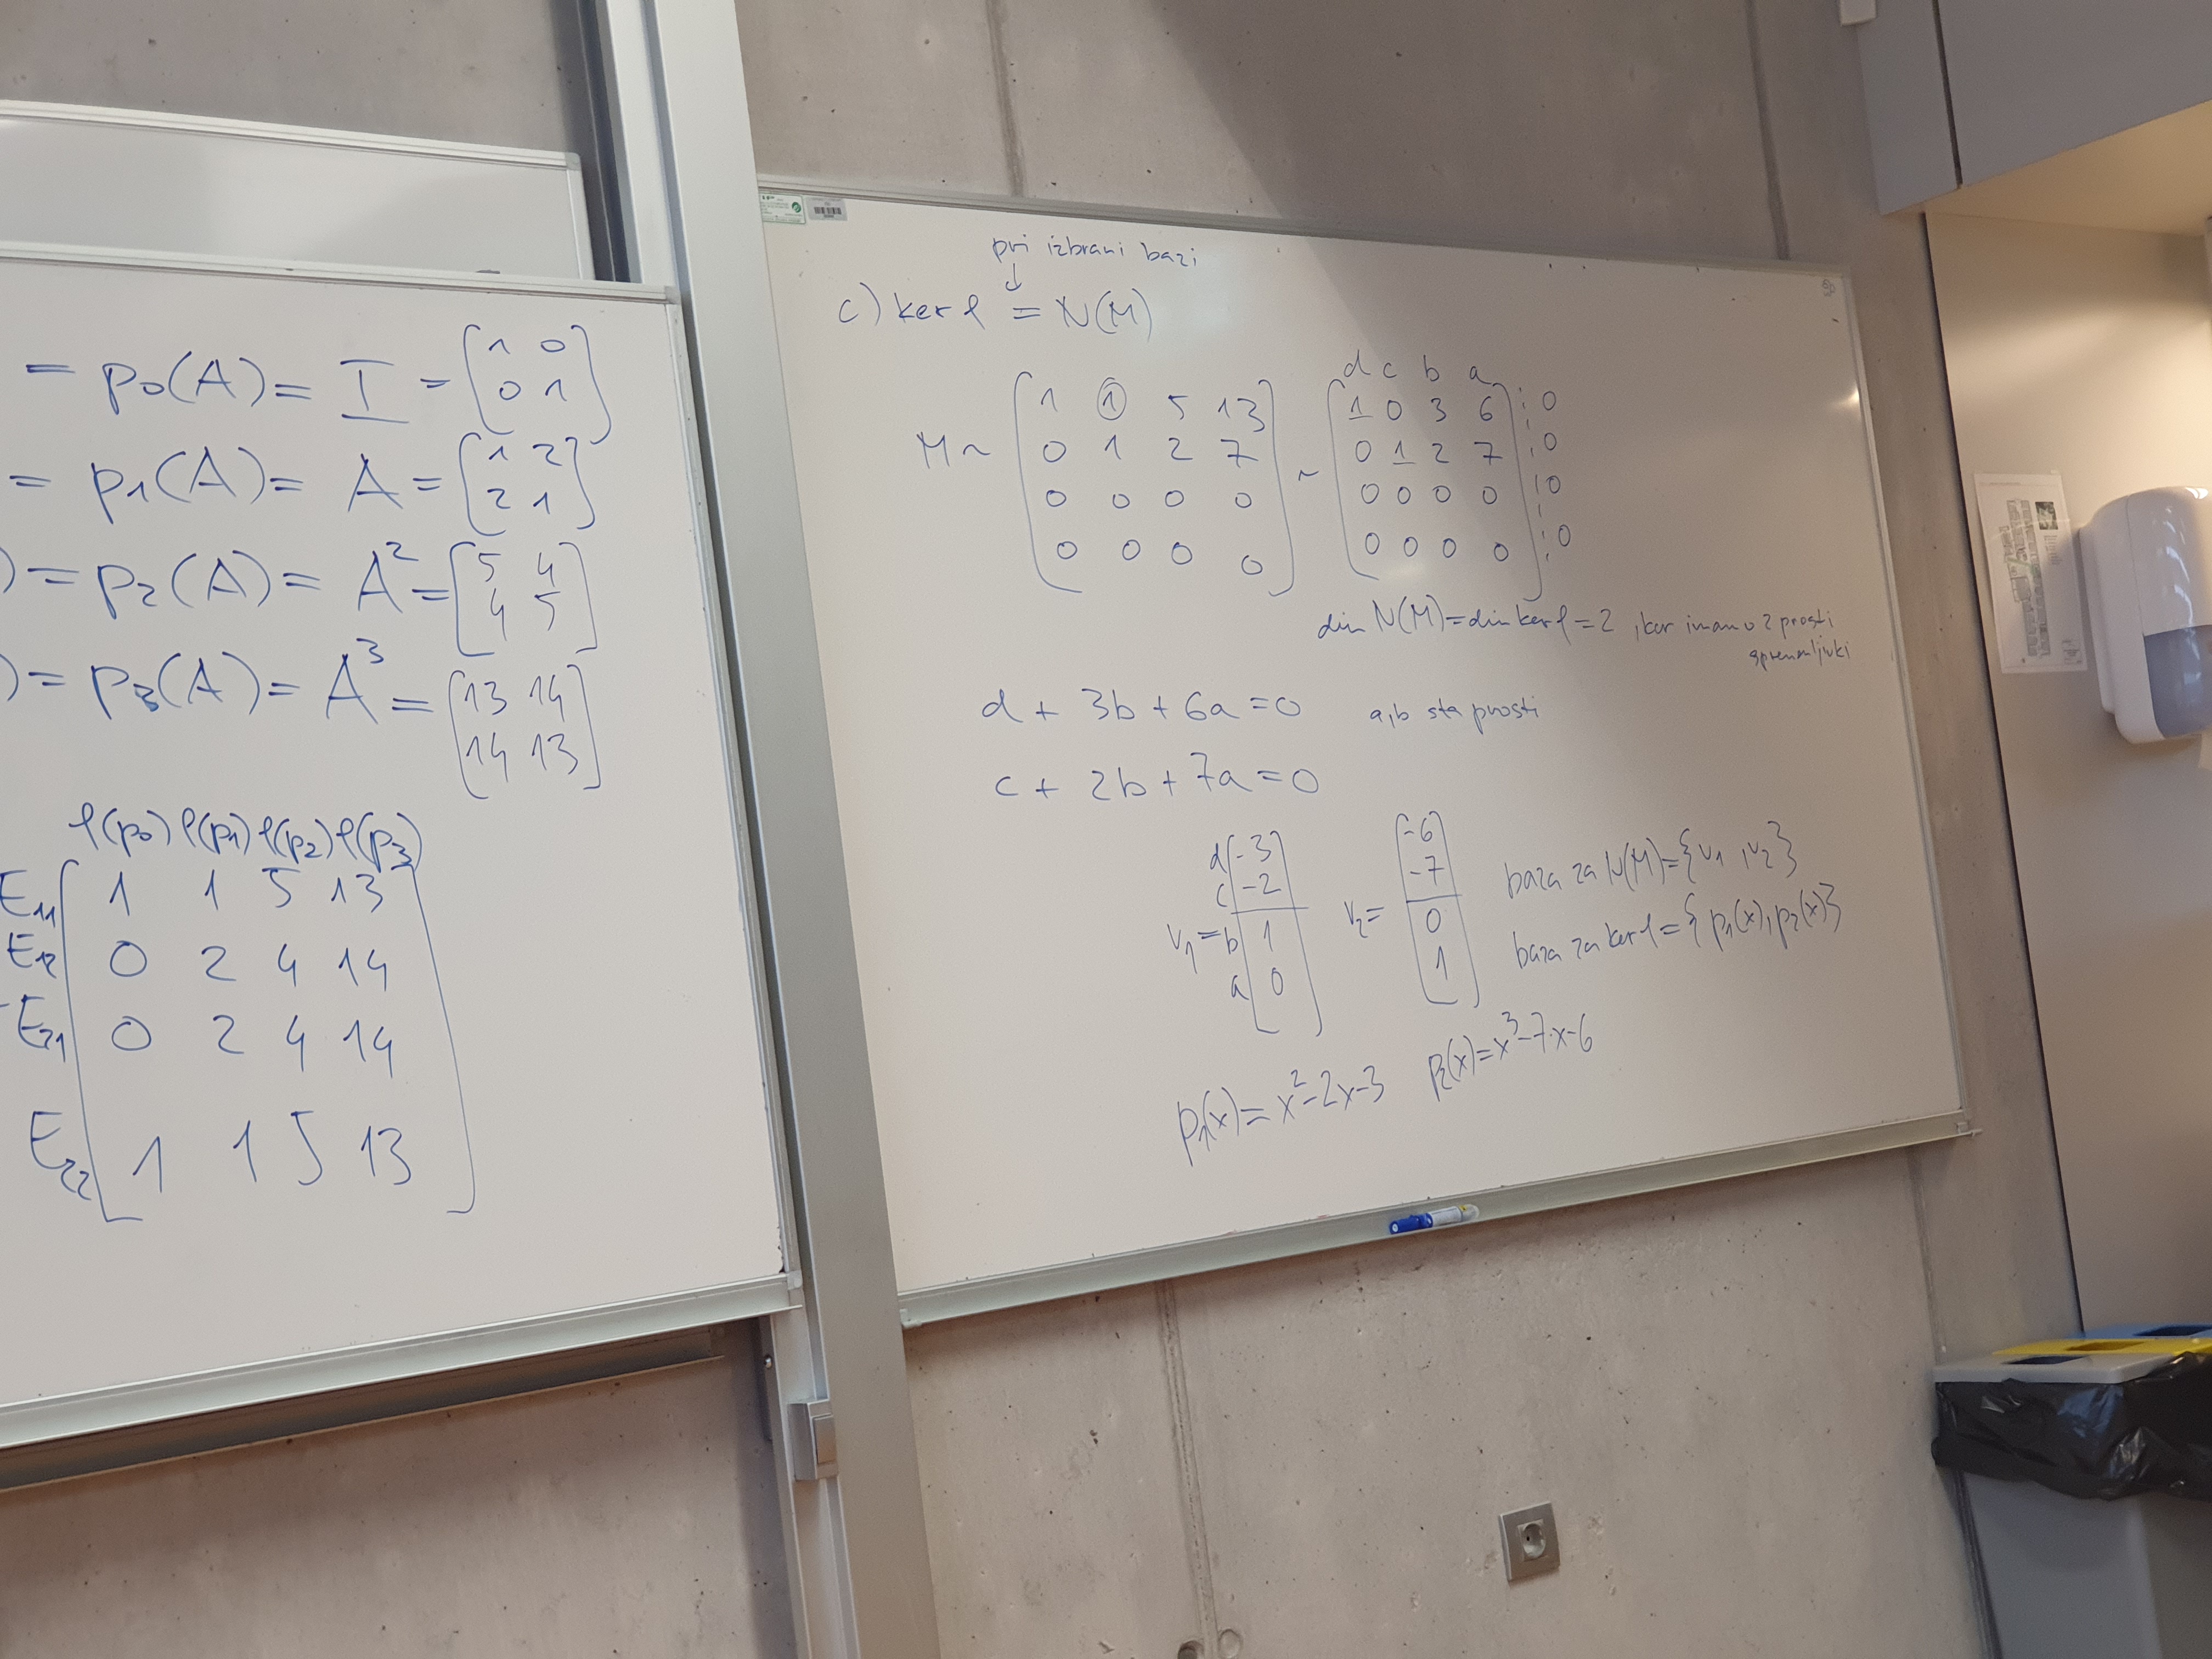 = p₀(A) = I = [1 0
0 1]
= p₁(A) = A = [1 2
2 1]
) = p₂(A) = A² = [5 4
4 5]
) = p₃(A) = A³ = [13 14
14 13]
φ(p₀) φ(p₁) φ(p₂) φ(p₃)
E₁₁ [1 1 5 13
E₁₂ 0 2 4 14
E₂₁ 0 2 4 14
E₂₂ 1 1 5 13]
pri izbrani bazi
↓
c) ker φ = N(M)
d c b a
M ~ [1 1 5 13 ~ [1 0 3 6 | 0
0 1 2 7 0 1 2 7 | 0
0 0 0 0 0 0 0 0 | 0
0 0 0 0] 0 0 0 0] | 0
dim N(M) = dim ker φ = 2, ker imamo 2 prosti
spremenljivki
d + 3b + 6a = 0 a,b sta prosti
c + 2b + 7a = 0
d [-3 [-6
c -2 -7
v₁ = b 1 v₂ = 0
a 0] 1]
baza za N(M) = {v₁, v₂}
baza za ker φ = {p₁(x), p₂(x)}
p₁(x) = x² - 2x - 3 p₂(x) = x³ - 7·x - 6